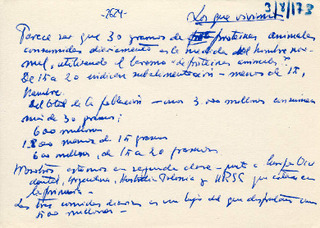 -2624- Los que vivimos 3/8/173
Parece ser que 30 gramos de proteínas animales
consumidas diariamente es la medida del hombre nor-
mal, utilizando el baremo "de proteínas animales".
De 15 a 20 indican subalimentación - menos de 15,
hambre.
del total de la población - unos 3.000 millones consumían
más de 30 gramos;
600 millones
1.800 menos de 15 gramos
600 millones, de 15 a 20 gramos
Nosotros estamos en segunda clase - junto a Europa Occi
dental, Argentina, Australia y URSS que están en
la primera -
Las tres comidas diarias es un lujo del que disfrutan unos
500 millones -